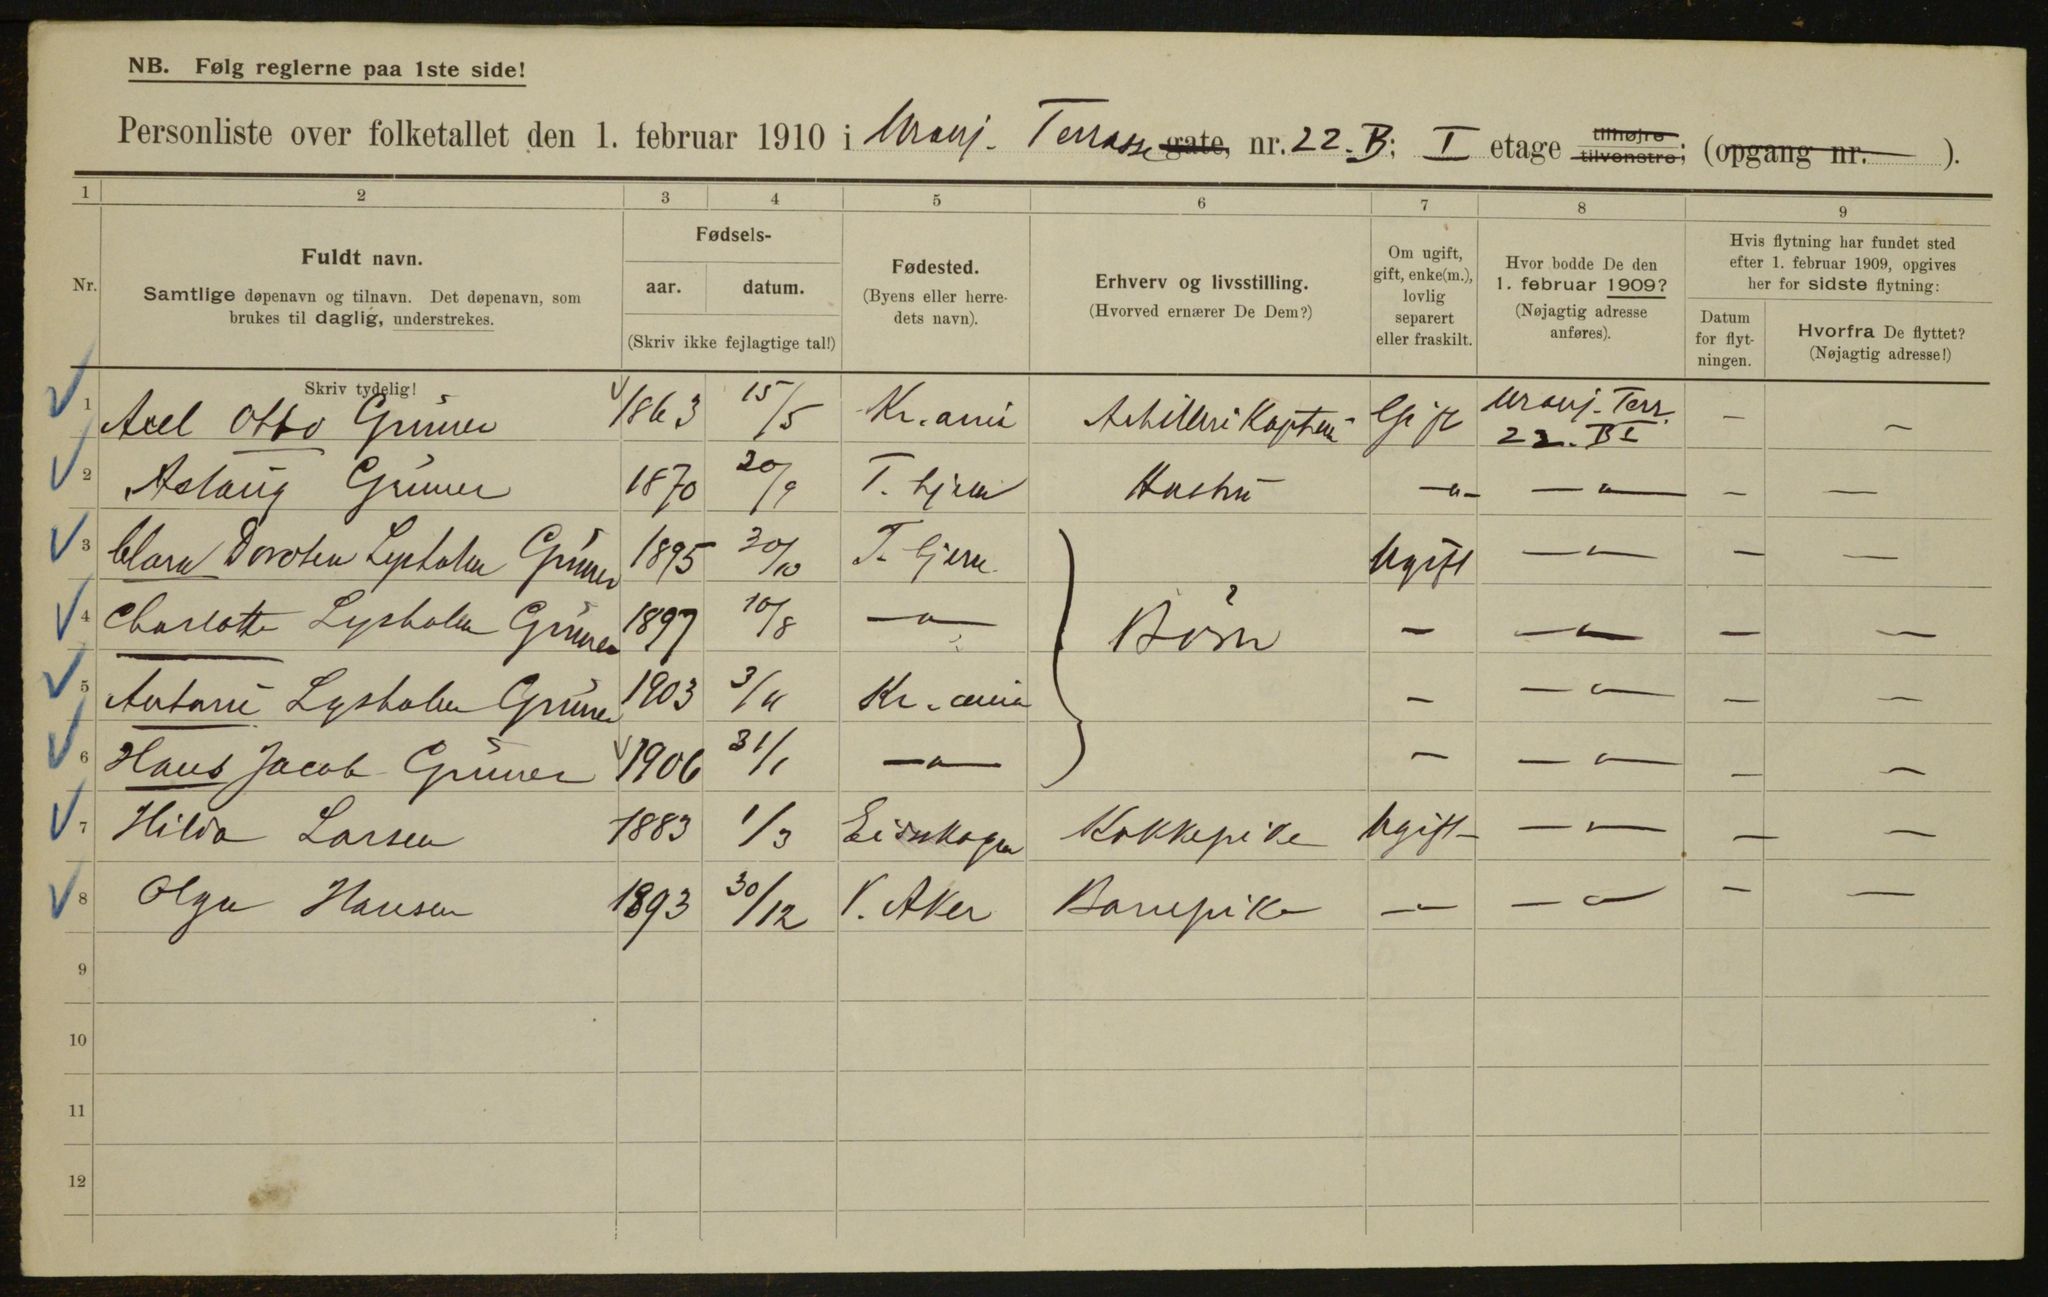 NB. Følg reglerne paa 1ste side!
Personliste over folketallet den 1. februar 1910 i Uranj. Terrasse gate, nr. 22. B; I etage tilhøjre tilvenstre; (opgang nr. ).
1 2 3 4 5 6 7 8 9
Nr.
Fuldt navn.
Samtlige døpenavn og tilnavn. Det døpenavn, som
brukes til daglig, understrekes.
Skriv tydelig!
Fødsels-
aar. datum.
(Skriv ikke fejlagtige tal!)
Fødested.
(Byens eller herre-
dets navn).
Erhverv og livsstilling.
(Hvorved ernærer De Dem?)
Om ugift,
gift, enke(m.),
lovlig
separert
eller fraskilt.
Hvor bodde De den
1. februar 1909?
(Nøjagtig adresse
anføres).
Hvis flytning har fundet sted
efter 1. februar 1909, opgives
her for sidste flytning:
Datum
for flyt-
ningen.
Hvorfra De flyttet?
(Nøjagtig adresse!)
1 Axel Otto Grüner 1863 15/5 Kr.ania Artilleri Kaptein Gift Uranj. Terr. 22. B I — —
2 Aslaug Grüner 1870 20/9 T. hjem Hustru —"— —"— — —
3 Clara Dorothea Lysholm Grüner 1895 30/10 T. hjem Ugift —"— — —
4 Charlotte Lysholm Grüner 1897 10/8 —"— Børn — —"— — —
5 Antonie Lysholm Grüner 1903 3/11 Kr.ania — —"— — —
6 Hans Jacob Grüner 1906 31/1 —"— — —"— — —
7 Hilda Larsen 1883 1/3 Eidskogen Kokkepike Ugift —"— — —
8 Olga Hansen 1893 30/12 V. Aker Barnepike —"— —"— — —
9
10
11
12